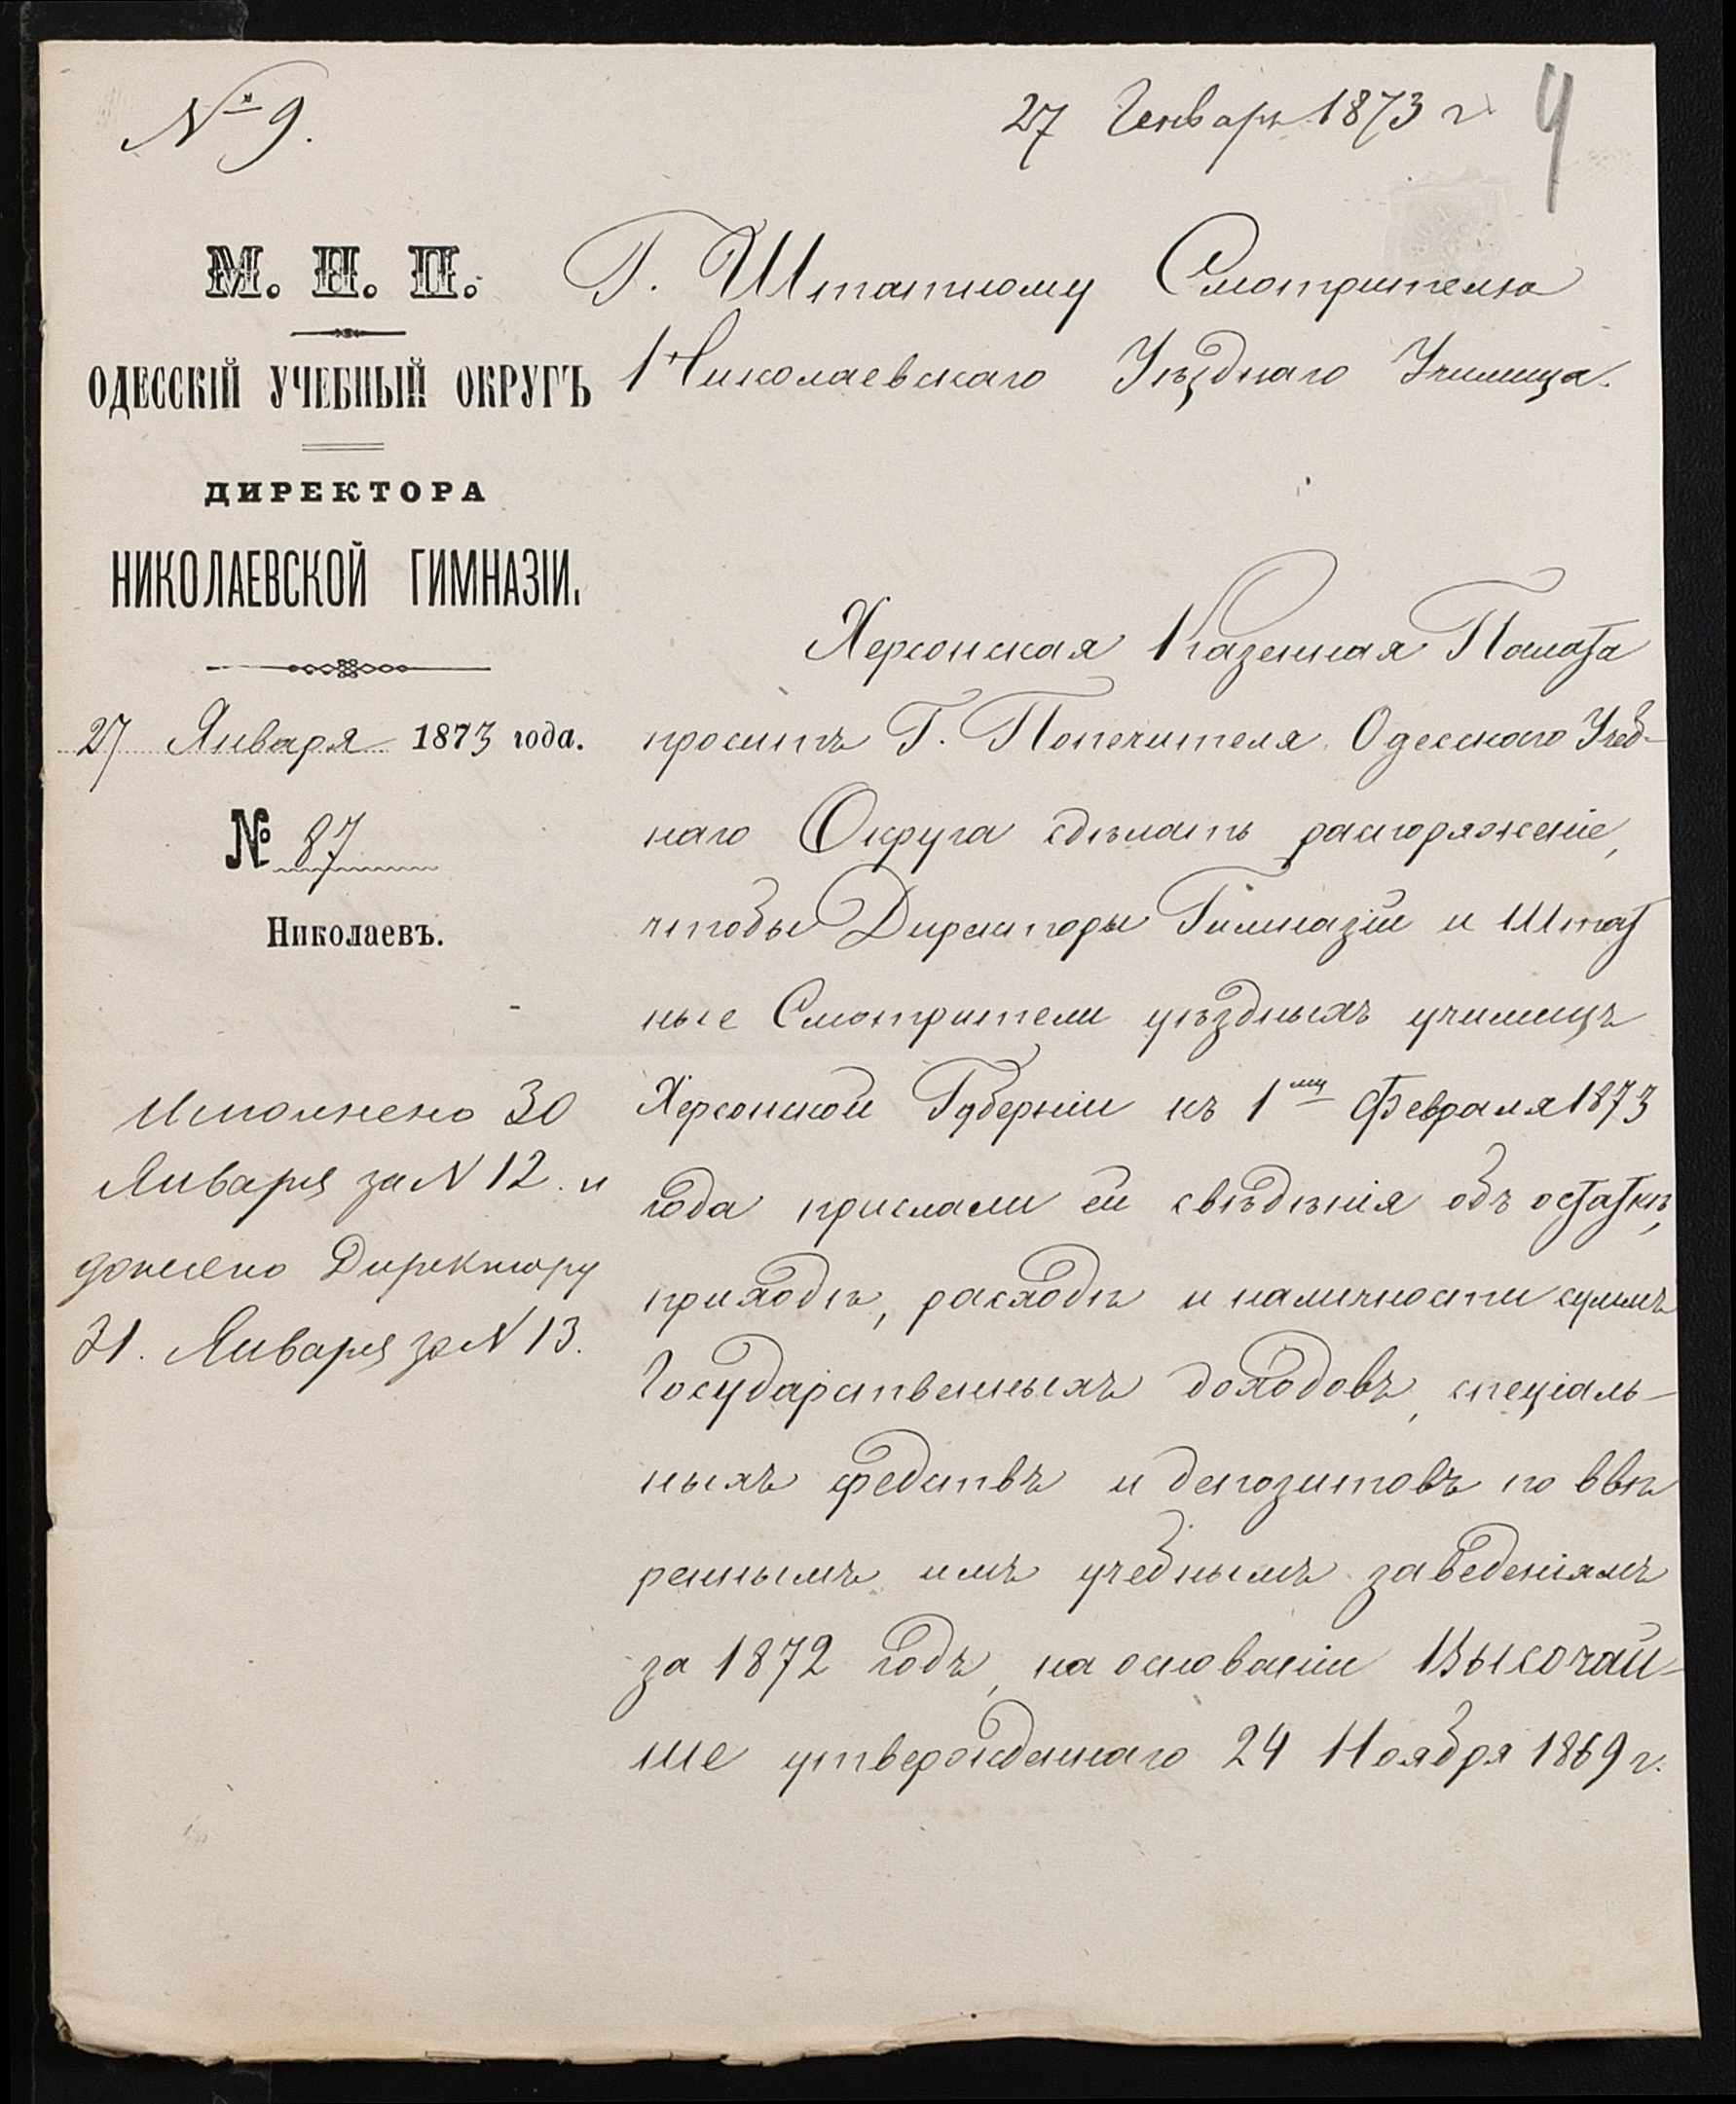 № 9.
27 Генварь 1873 г.
4
М. Н. П.
ОДЕССКІЙ УЧЕБНЫЙ ОКРУГЪ
ДИРЕКТОРА
НИКОЛАЕВСКОЙ ГИМНАЗІИ.
27 Января 1873 года.
№ 87
Николаевъ.
Исполнено 30
Января за N 12. и
донесено Директору
31. Января за N 13.
Г. Штатному Смотрителю
Николаевскаго Уѣзднаго Училища.
Херсонская Казенная Палата
проситъ Г. Попечителя Одесскаго Учеб-
наго Округа сдѣлать распоряженіе,
чтобы Директоры Гимназіи и Штат
ные Смотрители уѣздныхъ училищъ
Херсонской Губерніи къ 1му Февраля 1873
года прислали ей свѣдѣнія объ остаткѣ,
приходѣ, расходѣ и наличности суммъ
Государственныхъ доходовъ, спеціаль-
ныхъ средствъ и депозитовъ по ввѣ
реннымъ имъ учебнымъ заведеніямъ
за 1872 годъ, на основаніи Высочай-
ше утвержденнаго 24 Ноября 1869 г.